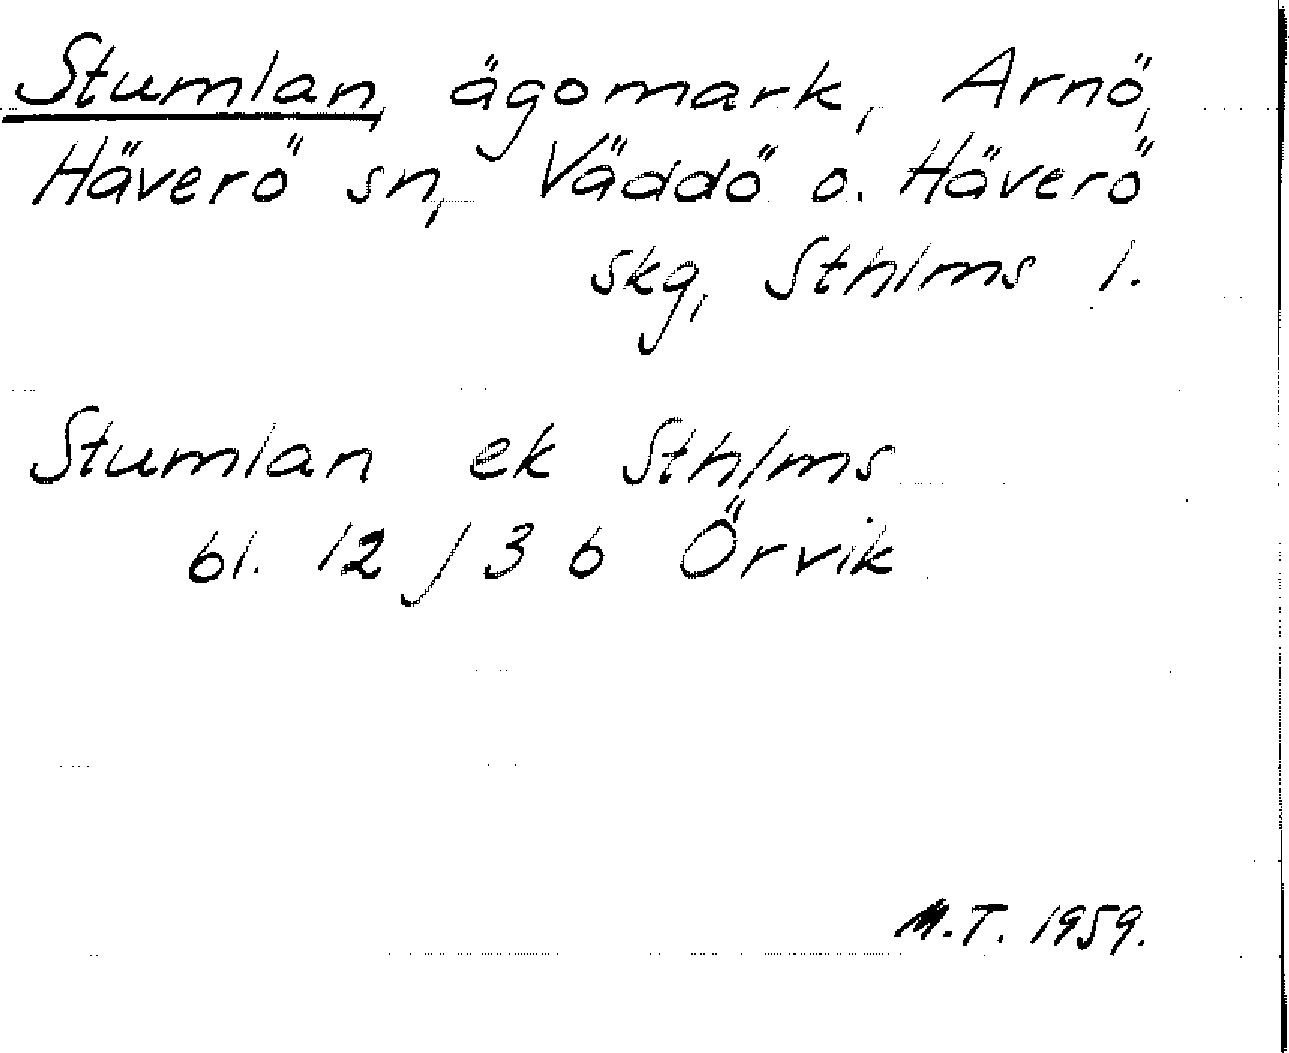 Stumlan, ägomark, Arnö,
Häverö sn, Väddö o. Häverö
skg, Sthlms l.
Stumlan ek Sthlms
bl. 12 / 3 b Örvik
M.T. 1959.